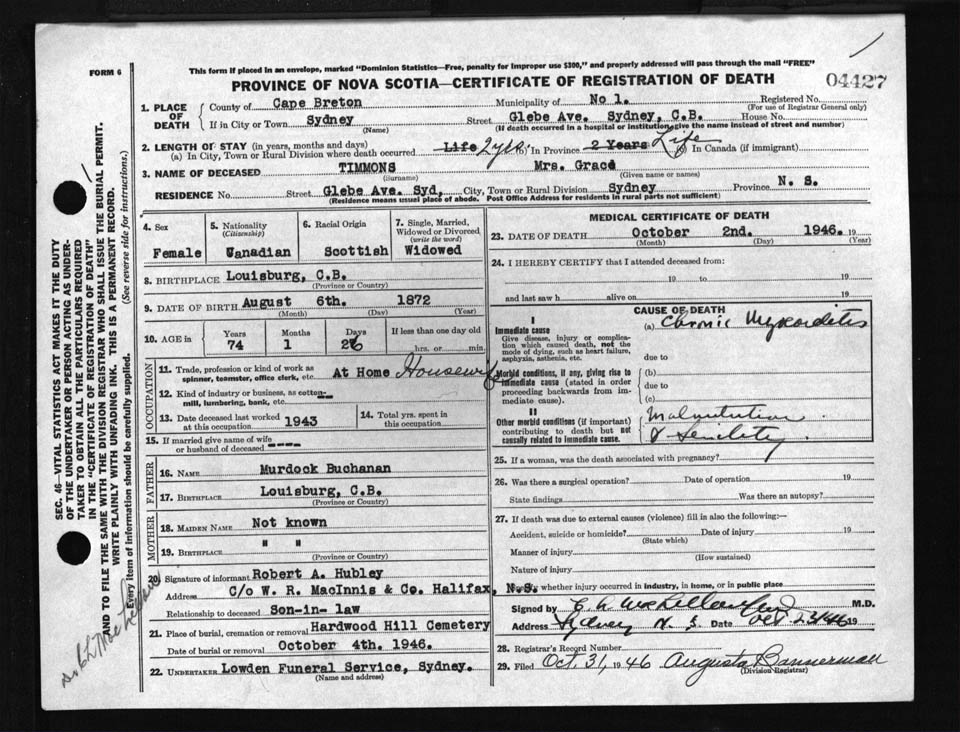 FORM 6
This form if placed in an envelope, marked "Dominion Statistics—Free, penalty for improper use $300," and properly addressed will pass through the mail "FREE"
PROVINCE OF NOVA SCOTIA—CERTIFICATE OF REGISTRATION OF DEATH
04427
1. PLACE OF DEATH
County of Cape Breton Municipality of No 1. Registered No.
(For use of Registrar General only)
If in City or Town Sydney Street Glebe Ave. Sydney, C.B. House No.
(Name) (If death occurred in a hospital or institution, give the name instead of street and number)
2. LENGTH OF STAY (in years, months and days)
(a) In City, Town or Rural Division where death occurred Life 2 yrs. (b) In Province 2 Years Life (c) In Canada (if immigrant)
3. NAME OF DECEASED TIMMONS Mrs. Grace
(Surname) (Given name or names)
RESIDENCE No. Street Glebe Ave. Syd, City, Town or Rural Division Sydney Province N. S.
(Residence means usual place of abode. Post Office Address for residents in rural parts not sufficient)
4. Sex
Female
5. Nationality
(Citizenship)
Canadian
6. Racial Origin
Scottish
7. Single, Married, Widowed or Divorced
(write the word)
Widowed
8. BIRTHPLACE Louisburg, C.B.
(Province or Country)
9. DATE OF BIRTH August 6th. 1872
(Month) (Day) (Year)
10. AGE in Years Months Days If less than one day old
74 1 26 hrs. or min.
OCCUPATION
11. Trade, profession or kind of work as spinner, teamster, office clerk, etc. At Home Housewife
12. Kind of industry or business, as cotton-mill, lumbering, bank, etc. ----
13. Date deceased last worked at this occupation 1943
14. Total yrs. spent in this occupation
15. If married give name of wife or husband of deceased ----
FATHER
16. NAME Murdock Buchanan
17. BIRTHPLACE Louisburg, C.B.
(Province or Country)
MOTHER
18. MAIDEN NAME Not known
19. BIRTHPLACE " "
(Province or Country)
20. Signature of informant Robert A. Hubley
Address C/o W. R. MacInnis & Co. Halifax, N.S.
Relationship to deceased Son-in- law
21. Place of burial, cremation or removal Hardwood Hill Cemetery
Date of burial or removal October 4th. 1946.
22. UNDERTAKER Lowden Funeral Service, Sydney.
(Name and address)
MEDICAL CERTIFICATE OF DEATH
23. DATE OF DEATH October 2nd. 1946. 19
(Month) (Day) (Year)
24. I HEREBY CERTIFY that I attended deceased from:
19 to 19
and last saw h alive on 19
CAUSE OF DEATH
I
Immediate cause
Give disease, injury or complication which caused death, not the mode of dying, such as heart failure, asphyxia, asthenia, etc.
(a) Chronic Myocarditis
due to
Morbid conditions, if any, giving rise to immediate cause (stated in order proceeding backwards from immediate cause).
(b)
due to
(c)
II
Other morbid conditions (if important) contributing to death but not causally related to immediate cause.
Malnutrition
& Senility
25. If a woman, was the death associated with pregnancy?
26. Was there a surgical operation? Date of operation 19
State findings Was there an autopsy?
27. If death was due to external causes (violence) fill in also the following:—
Accident, suicide or homicide? Date of injury 19
(State which)
Manner of injury
(How sustained)
Nature of injury
Specify whether injury occurred in industry, in home, or in public place
Signed by M.D.
Address Sydney N. S. Date Oct 23/46 19
28. Registrar's Record Number
29. Filed Oct. 31, 1946 Augusta Bannerman
(Division Registrar)
SEC. 46—VITAL STATISTICS ACT MAKES IT THE DUTY
OF THE UNDERTAKER OR PERSON ACTING AS UNDER-
TAKER TO OBTAIN ALL THE PARTICULARS REQUIRED
IN THE "CERTIFICATE OF REGISTRATION OF DEATH"
AND TO FILE THE SAME WITH THE DIVISION REGISTRAR WHO SHALL ISSUE THE BURIAL PERMIT.
WRITE PLAINLY WITH UNFADING INK. THIS IS A PERMANENT RECORD.
Every item of information should be carefully supplied. (See reverse side for instructions.)